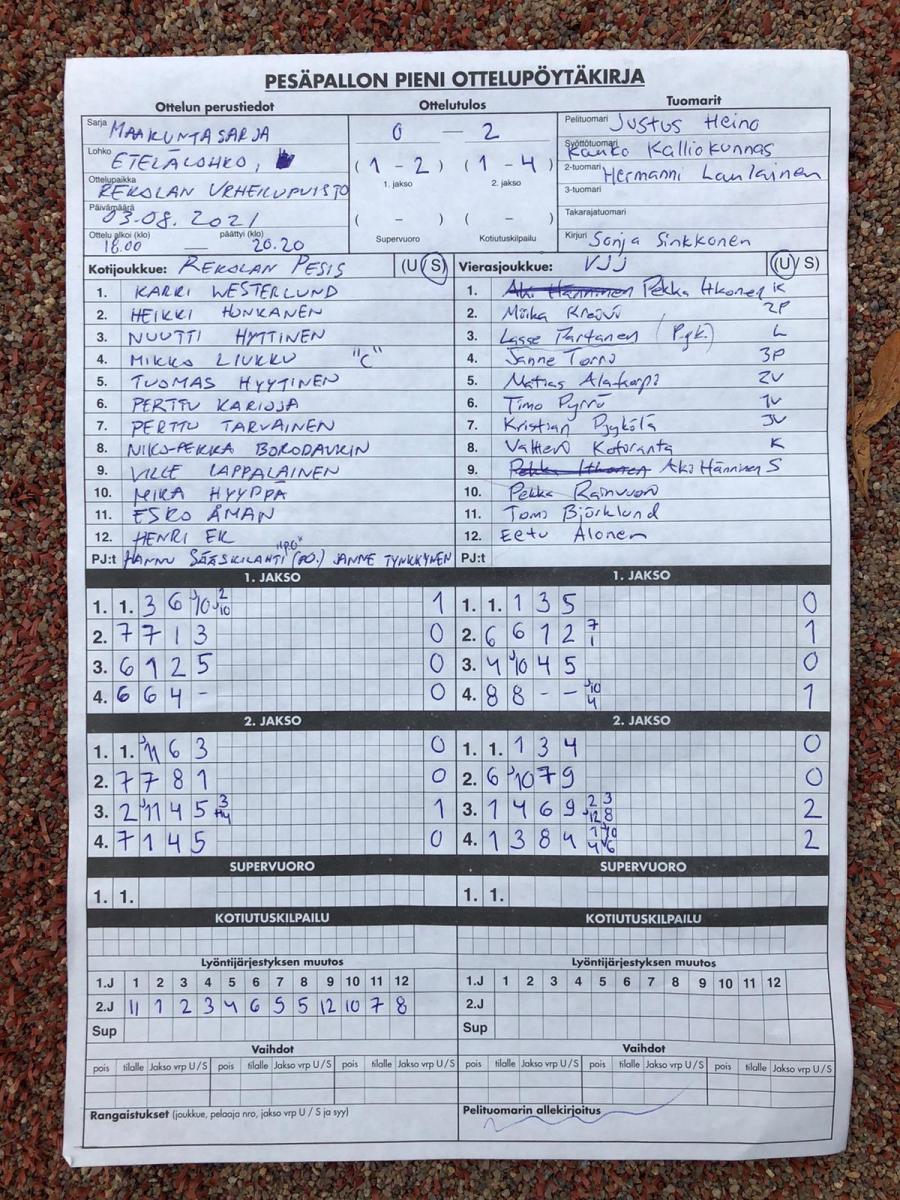 PESÄPALLON PIENI OTTELUPÖYTÄKIRJA
Ottelun perustiedot Ottelutulos Tuomarit
Sarja MAAKUNTASARJA
Lohko ETELÄLOHKO,
Ottelupaikka REKOLAN URHEILUPUISTO
Päivämäärä 03.08.2021
Ottelu alkoi (klo) päättyi (klo)
18.00 — 20.20
0 — 2
(1 - 2) (1 - 4)
1. jakso 2. jakso
( - ) ( - )
Supervuoro Kotiutuskilpailu
Pelituomari Justus Heino
Syöttötuomari Kauko Kalliokunnas
2-tuomari Hermanni Laulainen
3-tuomari
Takarajatuomari
Kirjuri Sonja Sinkkonen
Kotijoukkue: REKOLAN PESIS (U/S)
1. KARRI WESTERLUND
2. HEIKKI HONKANEN
3. NUUTTI HYTTINEN
4. MIKKO LIUKKU "C"
5. TUOMAS HYYTINEN
6. PERTTU KARIOJA
7. PERTTU TARVAINEN
8. NIKO-PEKKA BORODAVKIN
9. VILLE LAPPALAINEN
10. MIKA HYYPPÄ
11. ESKO ÅMAN
12. HENRI EK
PJ:t HANNU SÄÄSKILAHTI (PO.) JANNE TYNKKYNEN
Vierasjoukkue: VJJ (U/S)
1. Aki Hänninen Pekka Itkonen K
2. Miika 2P
3. Lasse Partanen (Pjk.) L
4. Janne Tornu 3P
5. Matias Alatarpi 2V
6. Timo Pyrrö 1V
7. Kristian Pyykölä 3V
8. Valtteri Kotoranta K
9. Pekka Itkonen Aki Hänninen S
10. Pekka Rainvuori
11. Tomi Björklund
12. Eetu Alonen
PJ:t
1. JAKSO 1. JAKSO
1. 1. 3 6 J10 2 J10 1
2. 7 7 1 3 0
3. 6 1 2 5 0
4. 6 6 4 - 0
1. 1. 1 3 5 0
2. 6 6 12 7 1 1
3. 4 J10 4 5 0
4. 8 8 - - J10 4 1
2. JAKSO 2. JAKSO
1. 1. J11 6 3 0
2. 7 7 8 1 0
3. 2 J11 4 5 3 1
4. 7 1 4 5 0
1. 1. 1 3 4 0
2. 6 J10 7 9 0
3. 1 4 6 9 2 3 J12 8 2
4. 1 3 8 4 1 J10 4 6 2
SUPERVUORO SUPERVUORO
1. 1. 1. 1.
KOTIUTUSKILPAILU KOTIUTUSKILPAILU
Lyöntijärjestyksen muutos Lyöntijärjestyksen muutos
1.J 1 2 3 4 5 6 7 8 9 10 11 12 1.J 1 2 3 4 5 6 7 8 9 10 11 12
2.J 11 1 2 3 4 6 9 5 12 10 7 8 2.J
Sup Sup
Vaihdot Vaihdot
pois tilalle Jakso vrp U/S pois tilalle Jakso vrp U/S pois tilalle Jakso vrp U/S pois tilalle Jakso vrp U/S pois tilalle Jakso vrp U/S pois tilalle Jakso vrp U/S
Rangaistukset (joukkue, pelaaja nro, jakso vrp U / S ja syy) Pelituomarin allekirjoitus